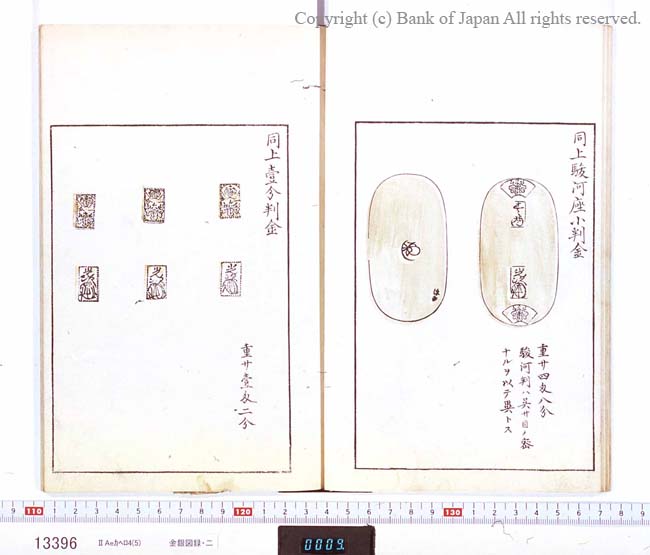 Copyright (c) Bank of Japan All rights reserved.
同上駿河座小判金
重サ四匁八分
駿河判ハ茣サ目ノ密
ナルヲ以テ異トス
同上壹分判金
重サ壹匁二分
光次
光次
光次
光次
13396
ⅡAeカヘロ4(5)
金銀図録・二
0009